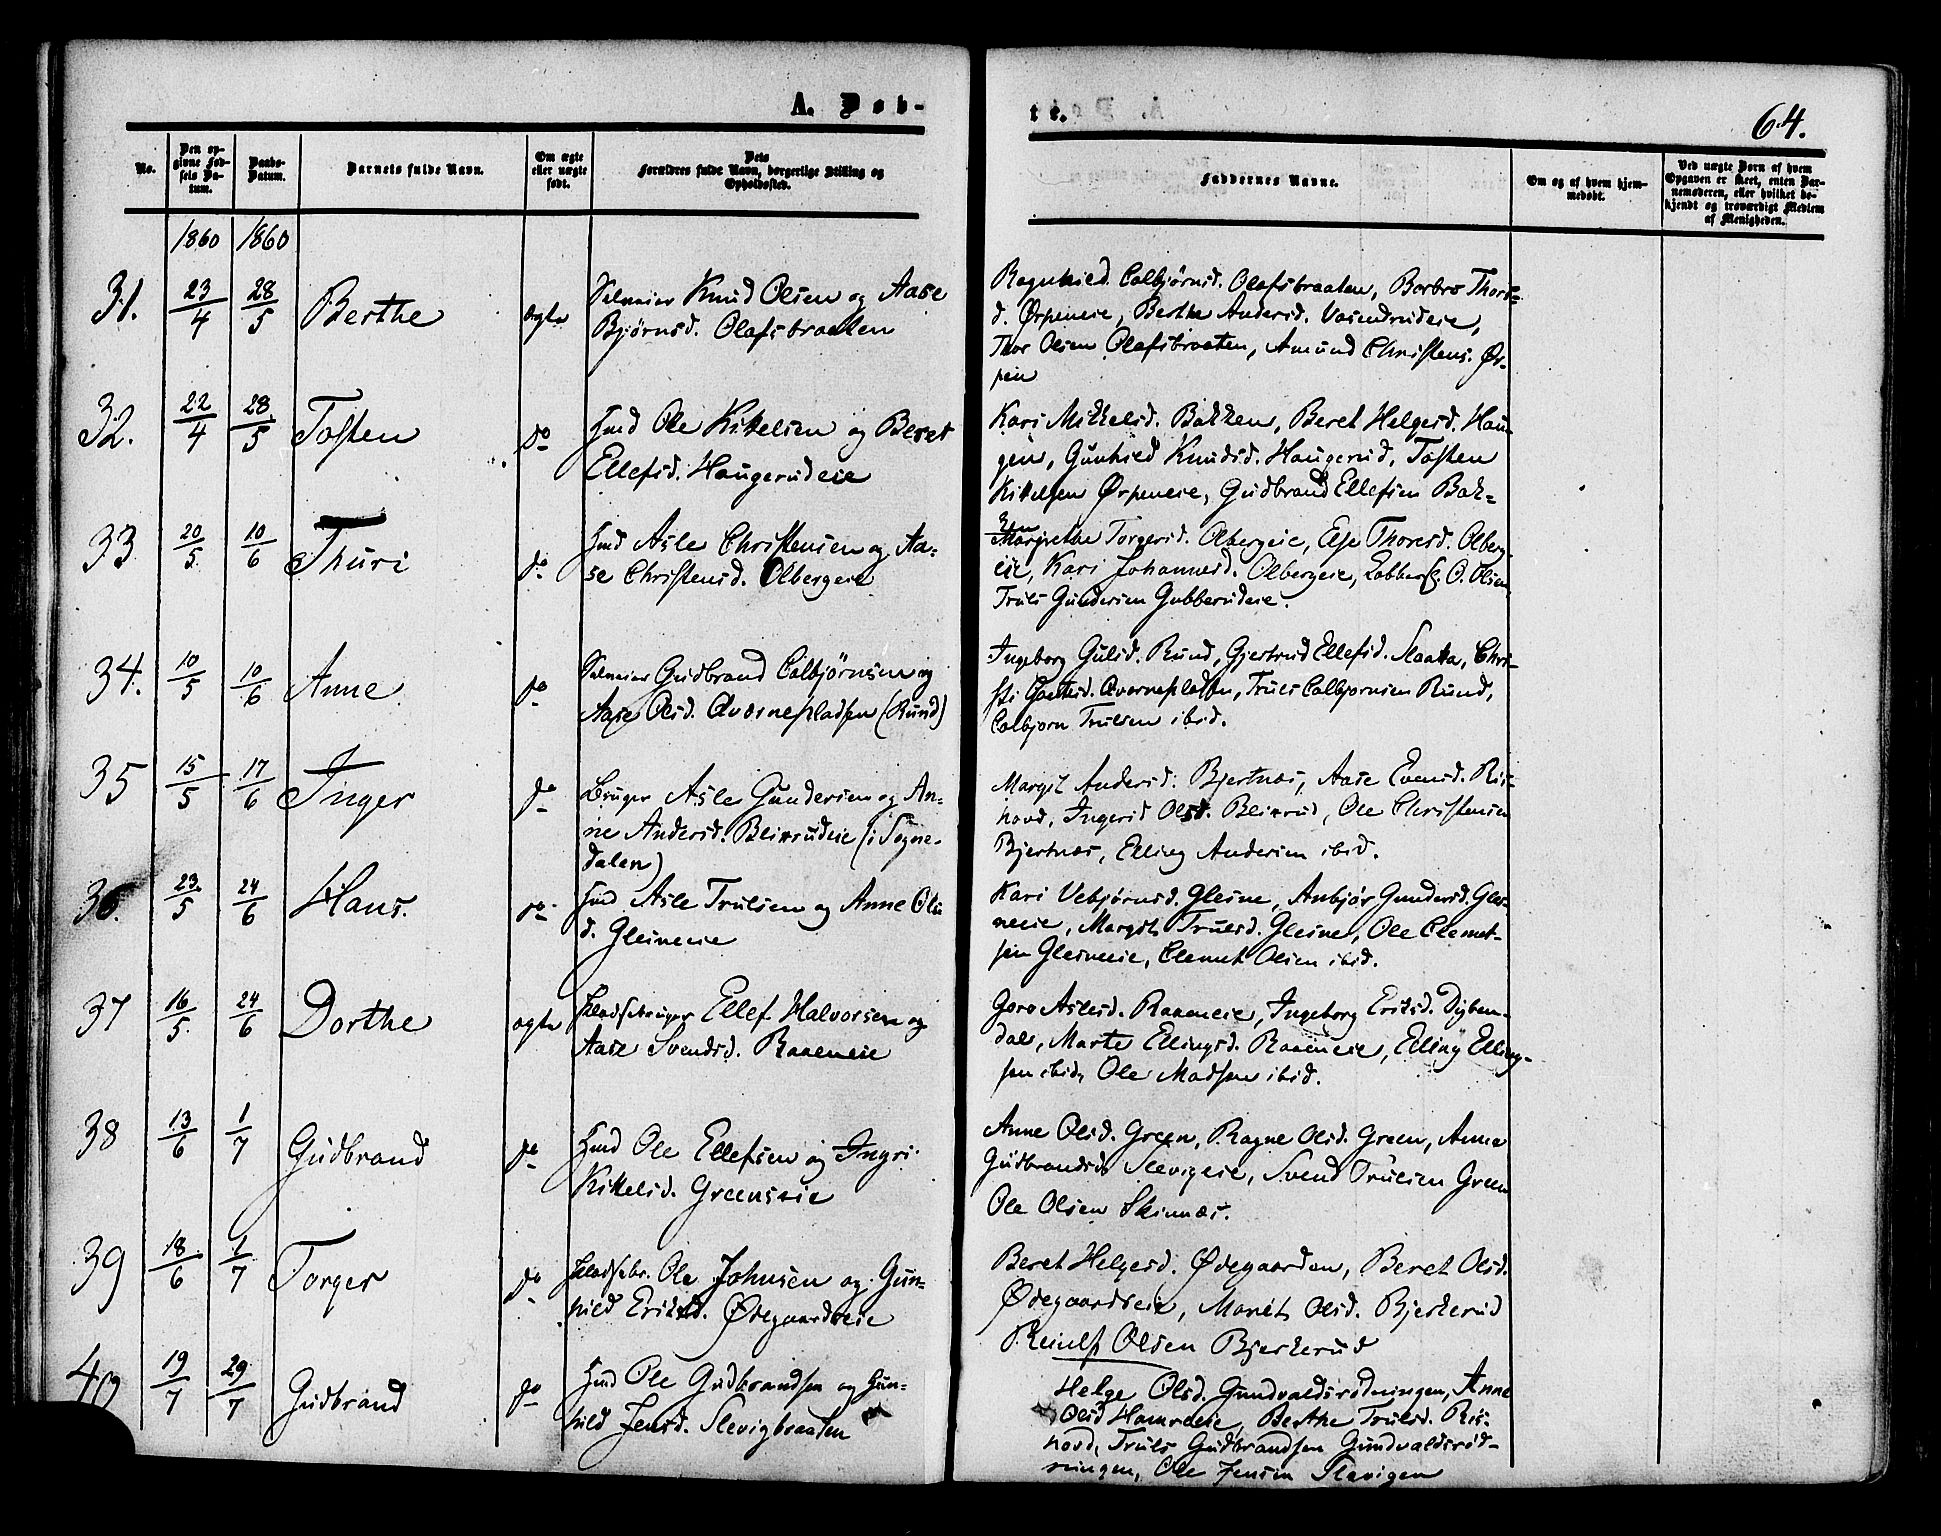 A. Døb-
te.
64.
No.
Den op-
givne Fød-
sels Da-
tum.
Daabs-
Datum.
Barnets fulde Navn.
Om ægte
eller uægte
født.
Dets
Forældres fulde Navn, borgerlige Stilling og
Opholdssted.
Faddernes Navne.
Om og af hvem hjem-
medøbt.
Ved uægte Børn af hvem
Opgaven er skeet, enten Bar-
nemoderen, eller hvilket be-
kjendt og troværdigt Medlem
af Menigheden.
1860 1860
31. 23/4 28/5 Berthe ægte
Selveier Knud Olsen og Aase
Bjørnsd. Olafsbraaten
Ragnhild Colbjørnsd. Olafsbraaten, Barbro Thors-
d. Ørpeneie, Berthe Andersd. Vasendrudeie,
Thor Olsen Olafsbraaten, Amund Christens. Ør-
pen
32. 22/4 28/5 Tosten do
Hmd Ole Kittelsen og Beret
Ellefsd. Haugerudeie
Kari Mikkelsd. Bakken, Beret Helgesd. Hau-
gen, Gunhild Knudsd. Haugerud, Tosten
Kittelsen Ørpeneie, Gudbrand Ellefsen Bak-
ken
33 20/5 10/6 Thuri do
Hmd Asle Christensen og Aa-
se Christensd. Olbergeie
Margrethe Torgersd. Olbergeie, Else Thoresd. Olberg-
eie, Kari Johannesd. Olbergeie, O. Olsen
Truls Gundersen Gubberudeie.
34. 10/5 10/6 Anne do
Selveier Gudbrand Colbjørnsen og
Aase Olsd. Qværnepladsen (Rund)
Ingeborg Gulsd. Rund, Gjertrud Ellefsd. Slaatta, Chri-
sti Qværnepladsen, Truls Colbjørnsen Rund,
Colbjørn Trulsen ibid.
35 15/5 17/6 Inger do
Bruger Asle Gundersen og An-
ne Andersd. Blixrudeie (i Sogne-
dalen)
Margit Andersd. Bjertnæs, Aase Evensd. Ris-
hovd, Ingerid Olsd. Blixrud, Ole Christensen
Bjertnæs, Elling Andersen ibid.
36. 23/5 24/6 Hans. do
Hmd Asle Trulsen og Anne Ols
d. Glesneeie
Kari Vebjørnsd. Glesne, Anbjør Gundersd. Gles-
neeie, Margit Trulsd. Glesne, Ole Clemet-
sen Glesneeie, Clemet Olsen ibid.
37 16/5 24/6 Dorthe ægte
Pladsebruger Ellef Halvorsen og
Aase Svendsd. Raaeneie
Goro Aslesd. Raaeneie, Ingeborg Eriksd. Dyben-
dal, Marte Ellingsd. Raaeneie, Elling Elling-
sen ibid, Ole Madsen ibid.
38 13/6 1/7 Gudbrand do
Hmd Ole Ellefsen og Ingri
Kittelsd. Greenseie
Anne Olsd. Green, Ragne Olsd. Green, Anne
Gudbrandsd. Slevigeie, Svend Trulsen Green
Ole Olsen Skinnæs.
39 18/6 1/7 Torger do
Pladsebr. Ole Johnsen og Gun-
hild Eriksd. Ødegaardseie
Beret Helgesd. Ødegaarden, Beret Olsd.
Ødegaardseie, Marit Olsd. Bjerkerud
Reiulf Olsen Bjerkerud
40 19/7 29/7 Gudbrand do
Hmd Ole Gudbrandsen og Gun-
hild Jensd. Slevigbraaten
Helge Olsd. Gundvaldsrødningen, Anne
Olsd Hamreeie, Berthe Trulsd. Ris-
hovd, Truls Gudbrandsen Gundvaldsrød-
ningen, Ole Jensen Slevigen